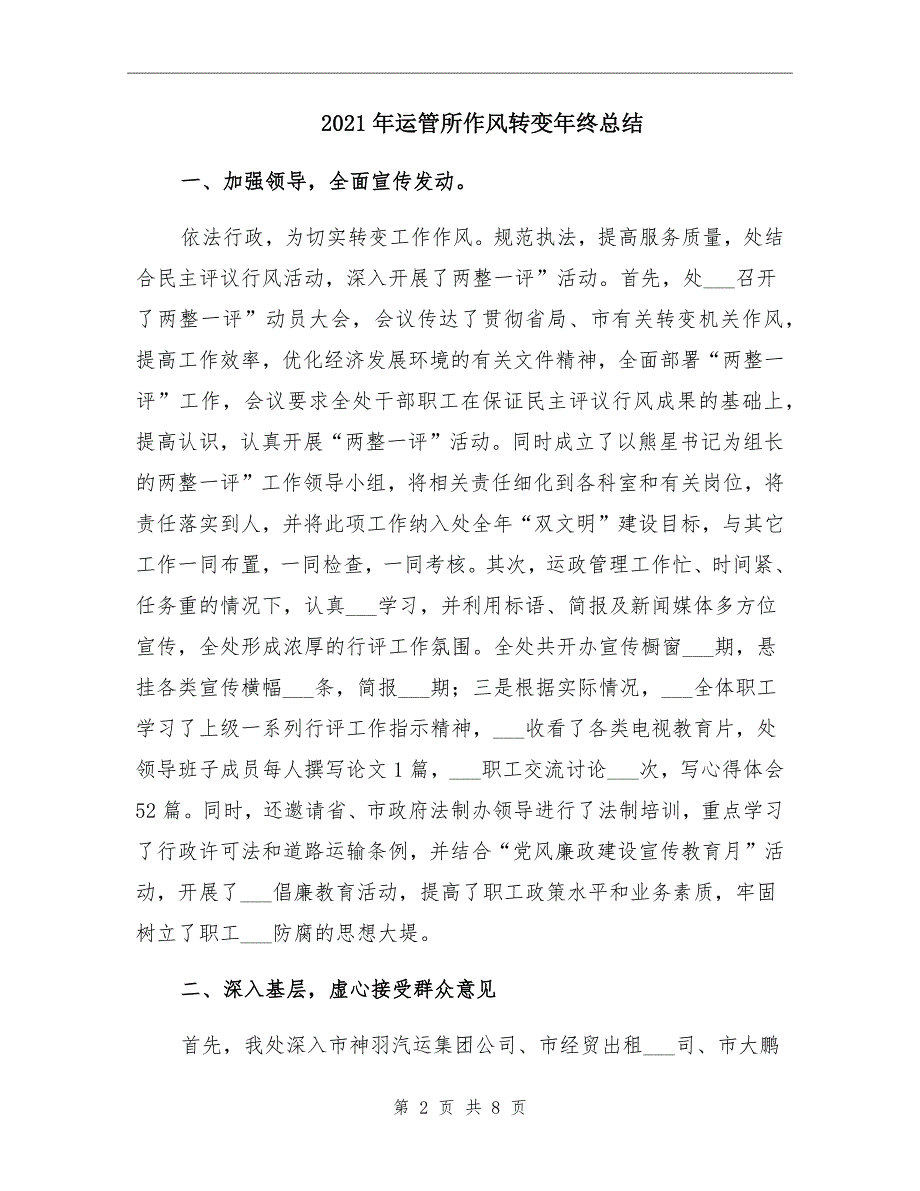 2021年运管所作风转变年终总结
一、加强领导，全面宣传发动。
依法行政，为切实转变工作作风。规范执法，提高服务质量，处结
合民主评议行风活动，深入开展了两整一评”活动。首先，处___召开
了两整一评”动员大会，会议传达了贯彻省局、市有关转变机关作风，
提高工作效率，优化经济发展环境的有关文件精神，全面部署“两整一
评”工作，会议要求全处干部职工在保证民主评议行风成果的基础上，
提高认识，认真开展“两整一评”活动。同时成立了以熊星书记为组长
的两整一评”工作领导小组，将相关责任细化到各科室和有关岗位，将
责任落实到人，并将此项工作纳入处全年“双文明”建设目标，与其它
工作一同布置，一同检查，一同考核。其次，运政管理工作忙、时间紧、
任务重的情况下，认真___学习，并利用标语、简报及新闻媒体多方位
宣传，全处形成浓厚的行评工作氛围。全处共开办宣传橱窗___期，悬
挂各类宣传横幅___条，简报___期；三是根据实际情况，___全体职工
学习了上级一系列行评工作指示精神，___收看了各类电视教育片，处
领导班子成员每人撰写论文1篇，___职工交流讨论___次，写心得体会
52篇。同时，还邀请省、市政府法制办领导进行了法制培训，重点学习
了行政许可法和道路运输条例，并结合“党风廉政建设宣传教育月”活
动，开展了___倡廉教育活动，提高了职工政策水平和业务素质，牢固
树立了职工___防腐的思想大堤。
二、深入基层，虚心接受群众意见
首先，我处深入市神羽汽运集团公司、市经贸出租___司、市大鹏
第 2 页 共 8 页